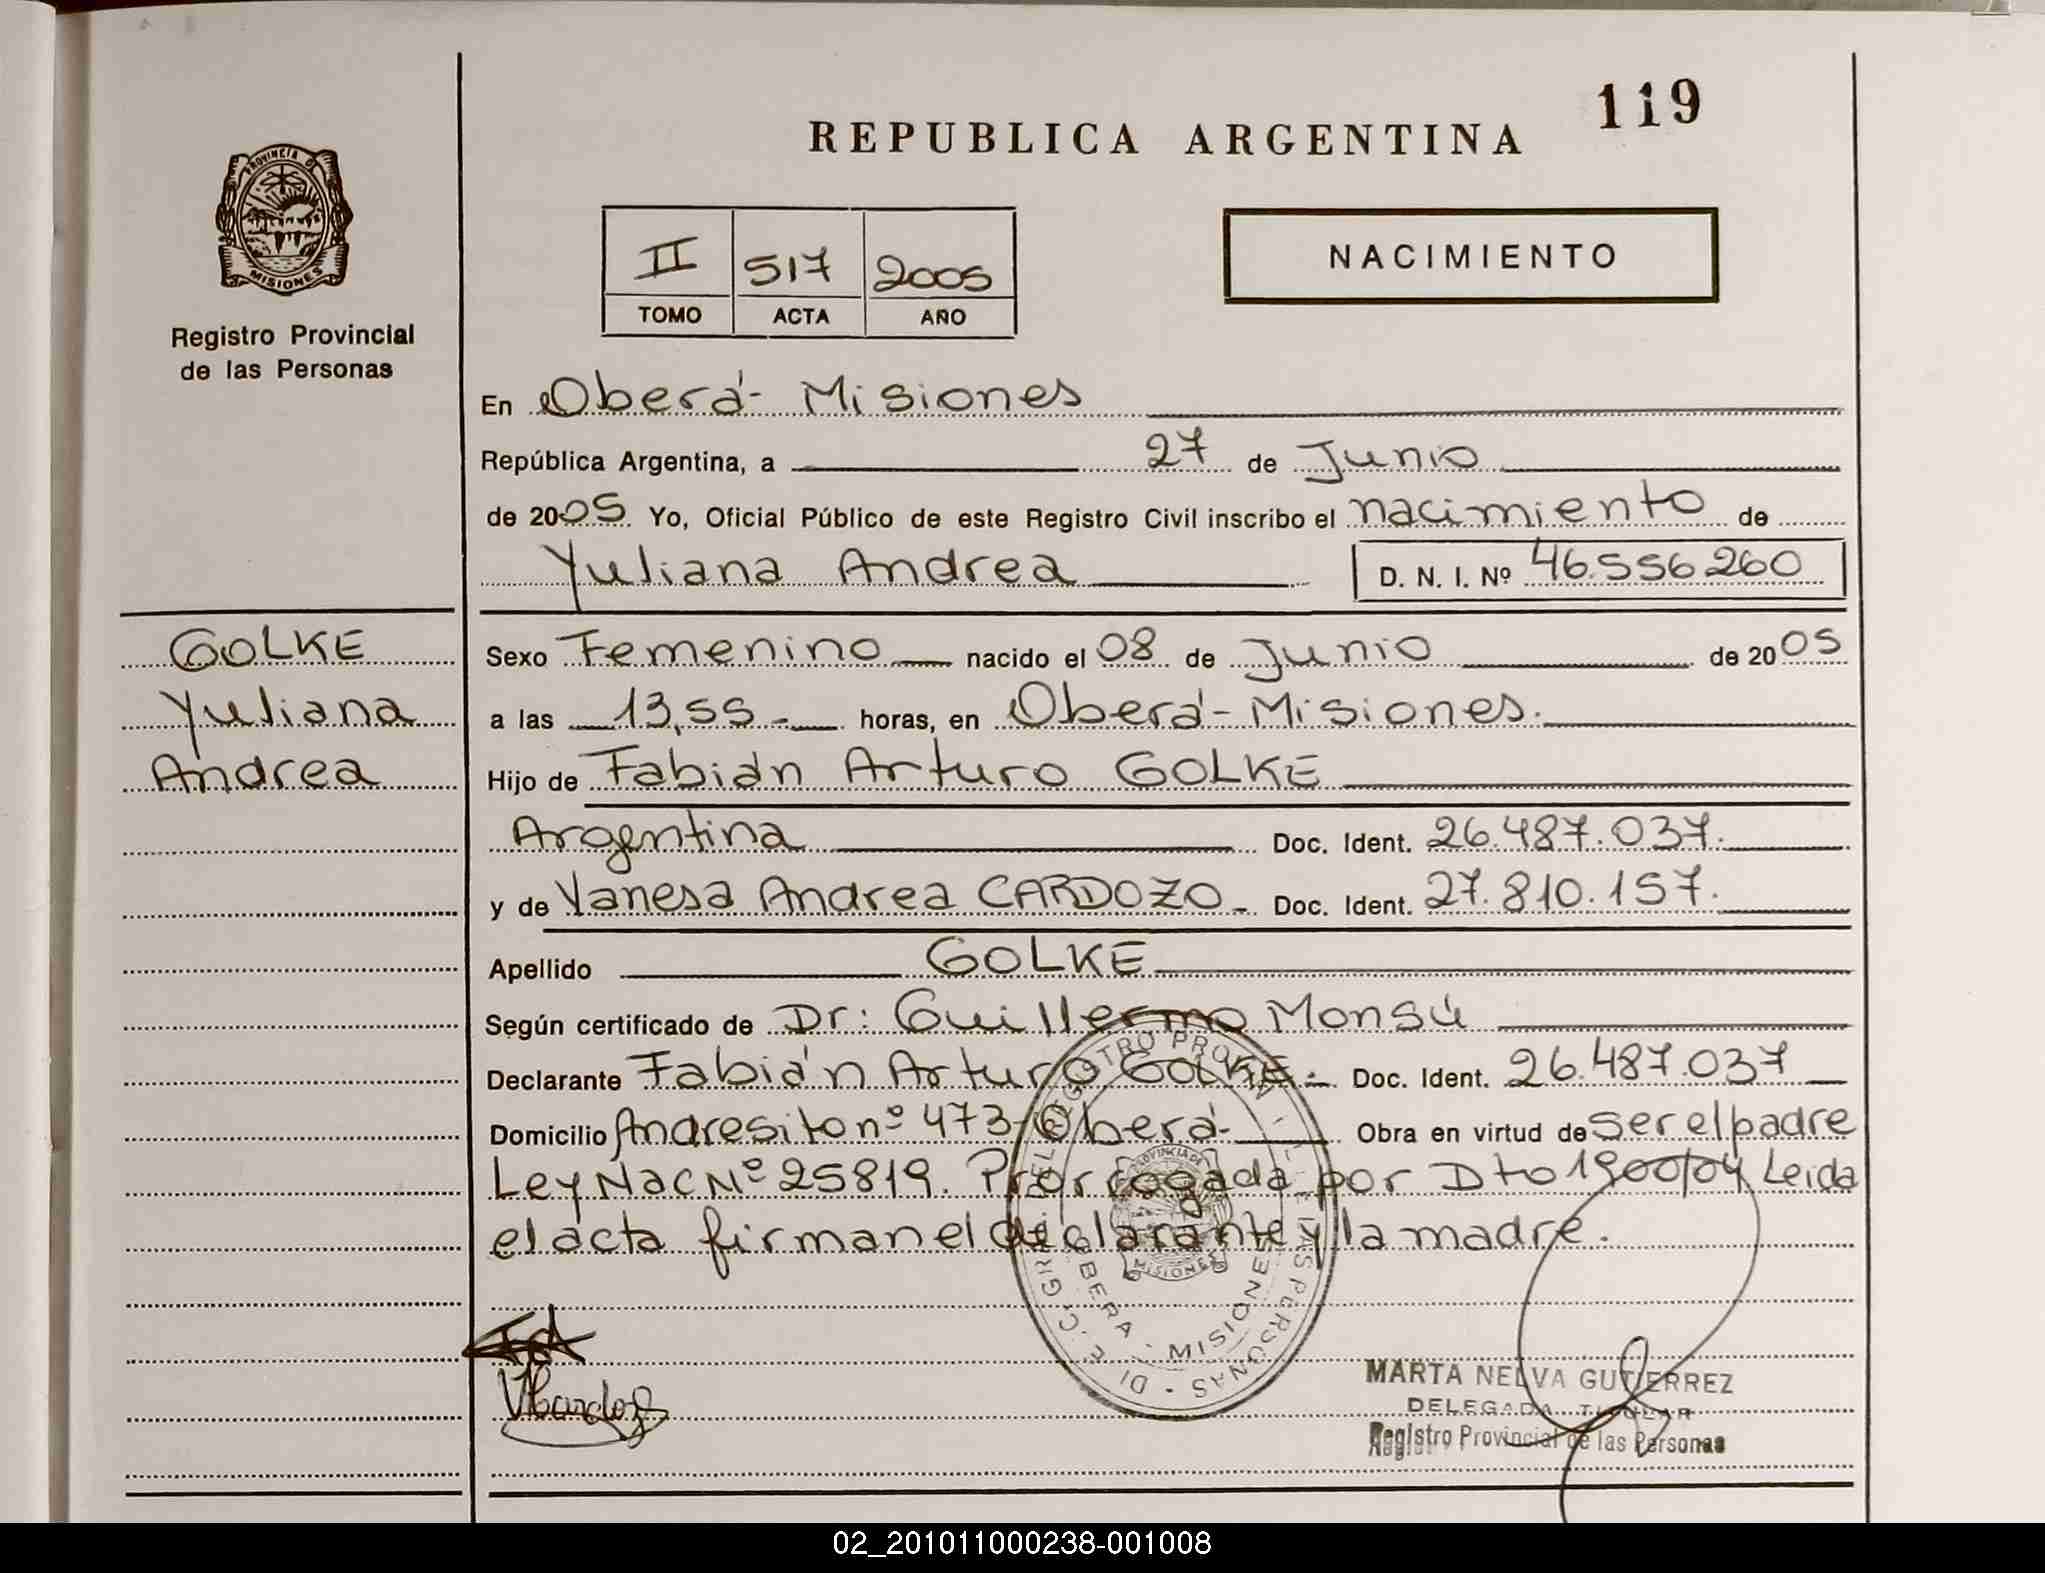 119
REPUBLICA ARGENTINA
PROVINCIA DE
MISIONES
Registro Provincial
de las Personas
II 517 2005
TOMO ACTA AÑO
NACIMIENTO
En Oberá - Misiones
República Argentina, a 27 de Junio
de 2005 Yo, Oficial Público de este Registro Civil inscribo el nacimiento de
Yuliana Andrea D. N. I. Nº 46.556.260
GOLKE
Yuliana
Andrea
Sexo Femenino nacido el 08 de Junio de 2005
a las 13,55 - horas, en Oberá - Misiones.
Hijo de Fabián Arturo GOLKE
Argentina Doc. Ident. 26.487.037.
y de Vanesa Andrea CARDOZO - Doc. Ident. 27.810.157.
Apellido GOLKE
Según certificado de Dr: Guillermo Monsú
Declarante Fabián Arturo GOLKE.- Doc. Ident. 26.487.037
Domicilio Andresito nº 473 - Oberá - Obra en virtud de ser el padre
Ley Nac Nº 25819. Prorrogada por Dto 1900/04 Leida
el acta firman el declarante y la madre.
OBERA - MISIONES
PROVINCIA DE
MISIONES
VACardozo
MARTA NELVA GUTIERREZ
DELEGADA TITULAR
Registro Provincial de las Personas
02_201011000238-001008